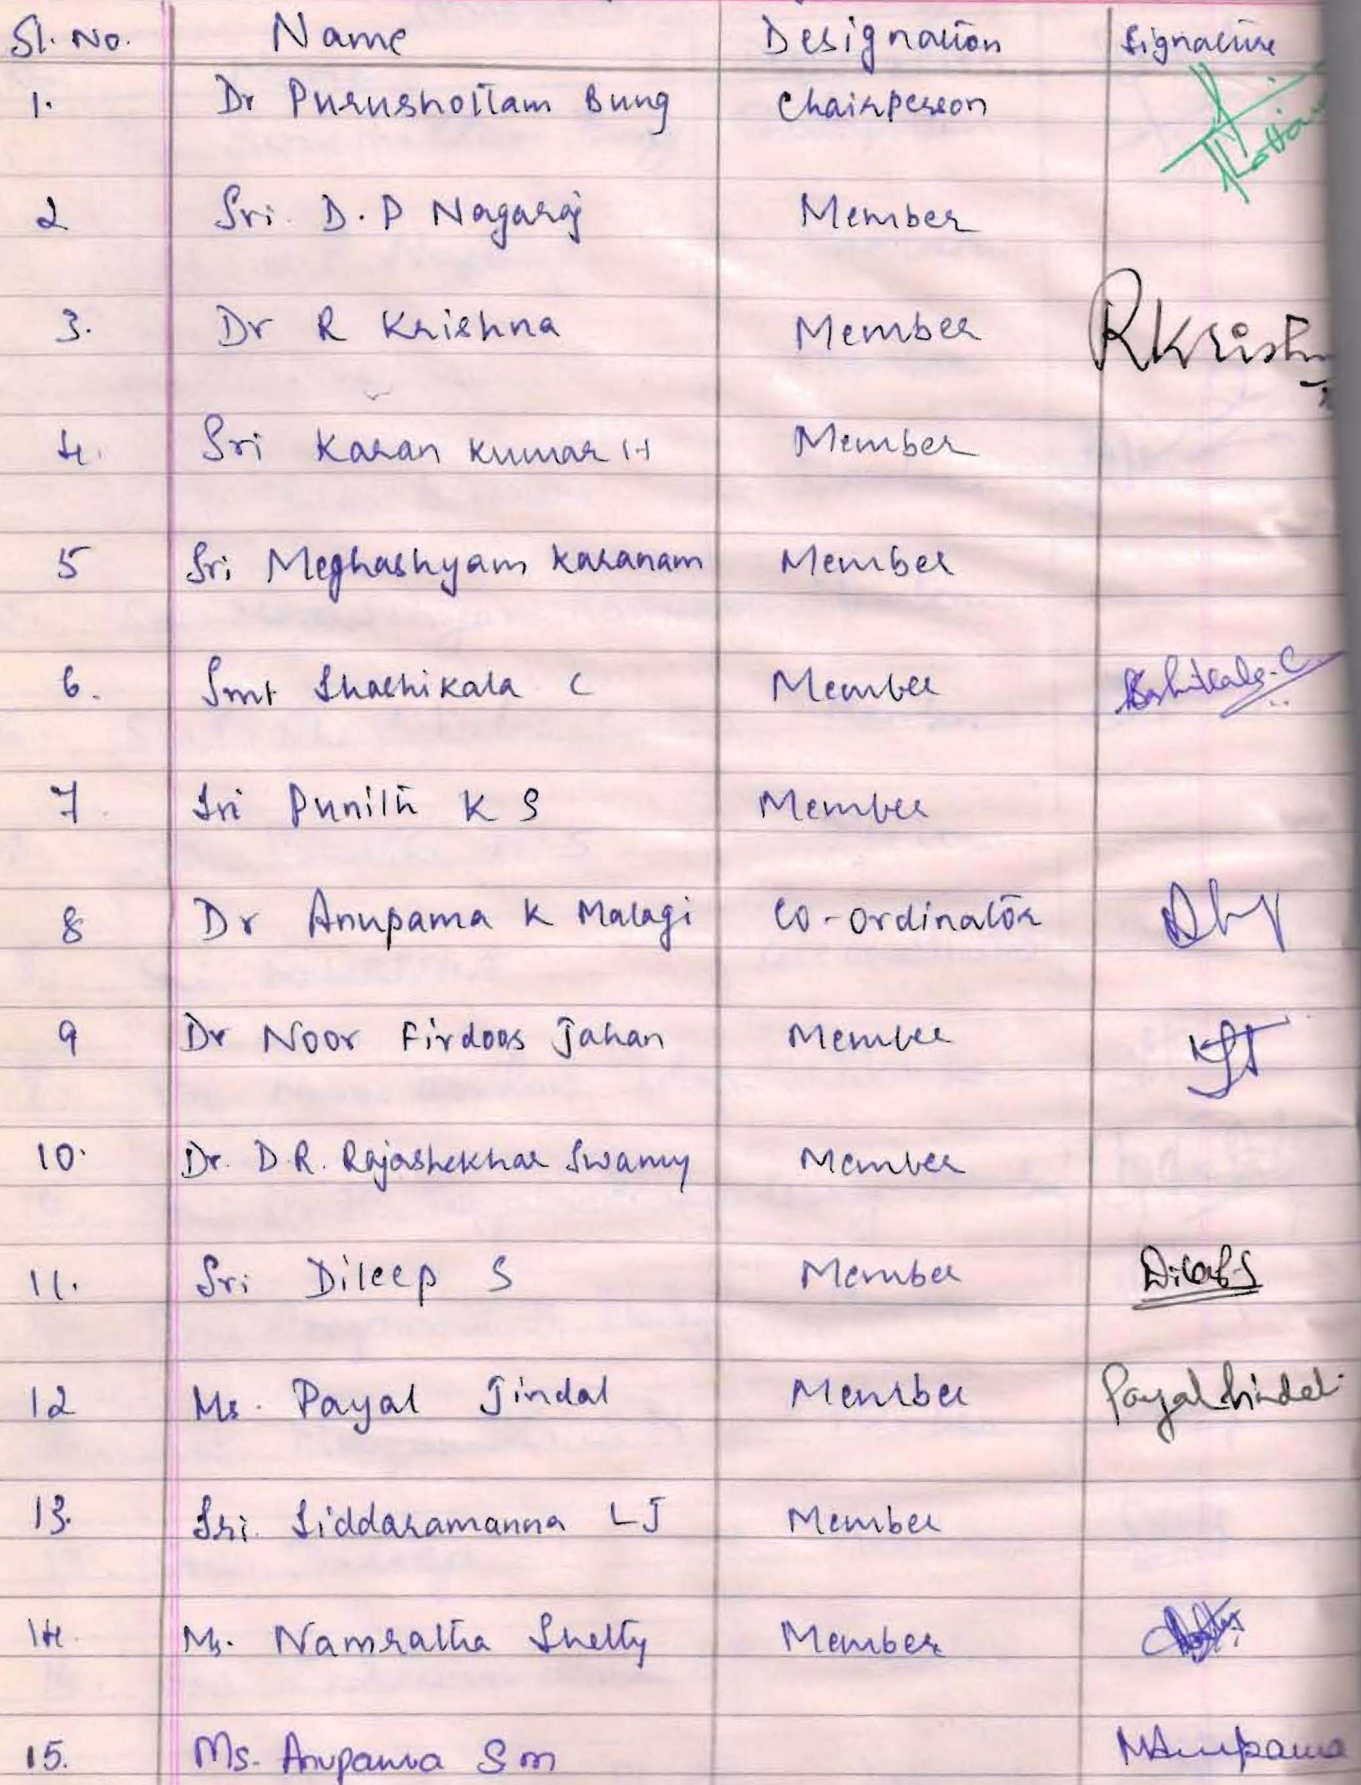 Sl. No. Name Designation Signature
1. Dr Purushottam Bung Chairperson
2 Sri. D. P Nagaraj Member
3. Dr R Krishna Member RKrish
4. Sri Karan Kumar H Member
5 Sri Meghashyam Karanam Member
6. Smt Shashikala C Member Shashikala. C
7. Sri Punith K S Member
8 Dr Anupama K Malagi Co-ordinator
9 Dr Noor Firdoos Jahan Member
10. Dr. D.R. Rajashekhar Swamy Member
11. Sri Dileep S Member Dileep S
12 Ms. Payal Jindal Member Payal Jindal
13. Sri. Siddaramanna LJ Member
14. Ms. Namratha Shetty Member
15. Ms. Anupama S m Anupama